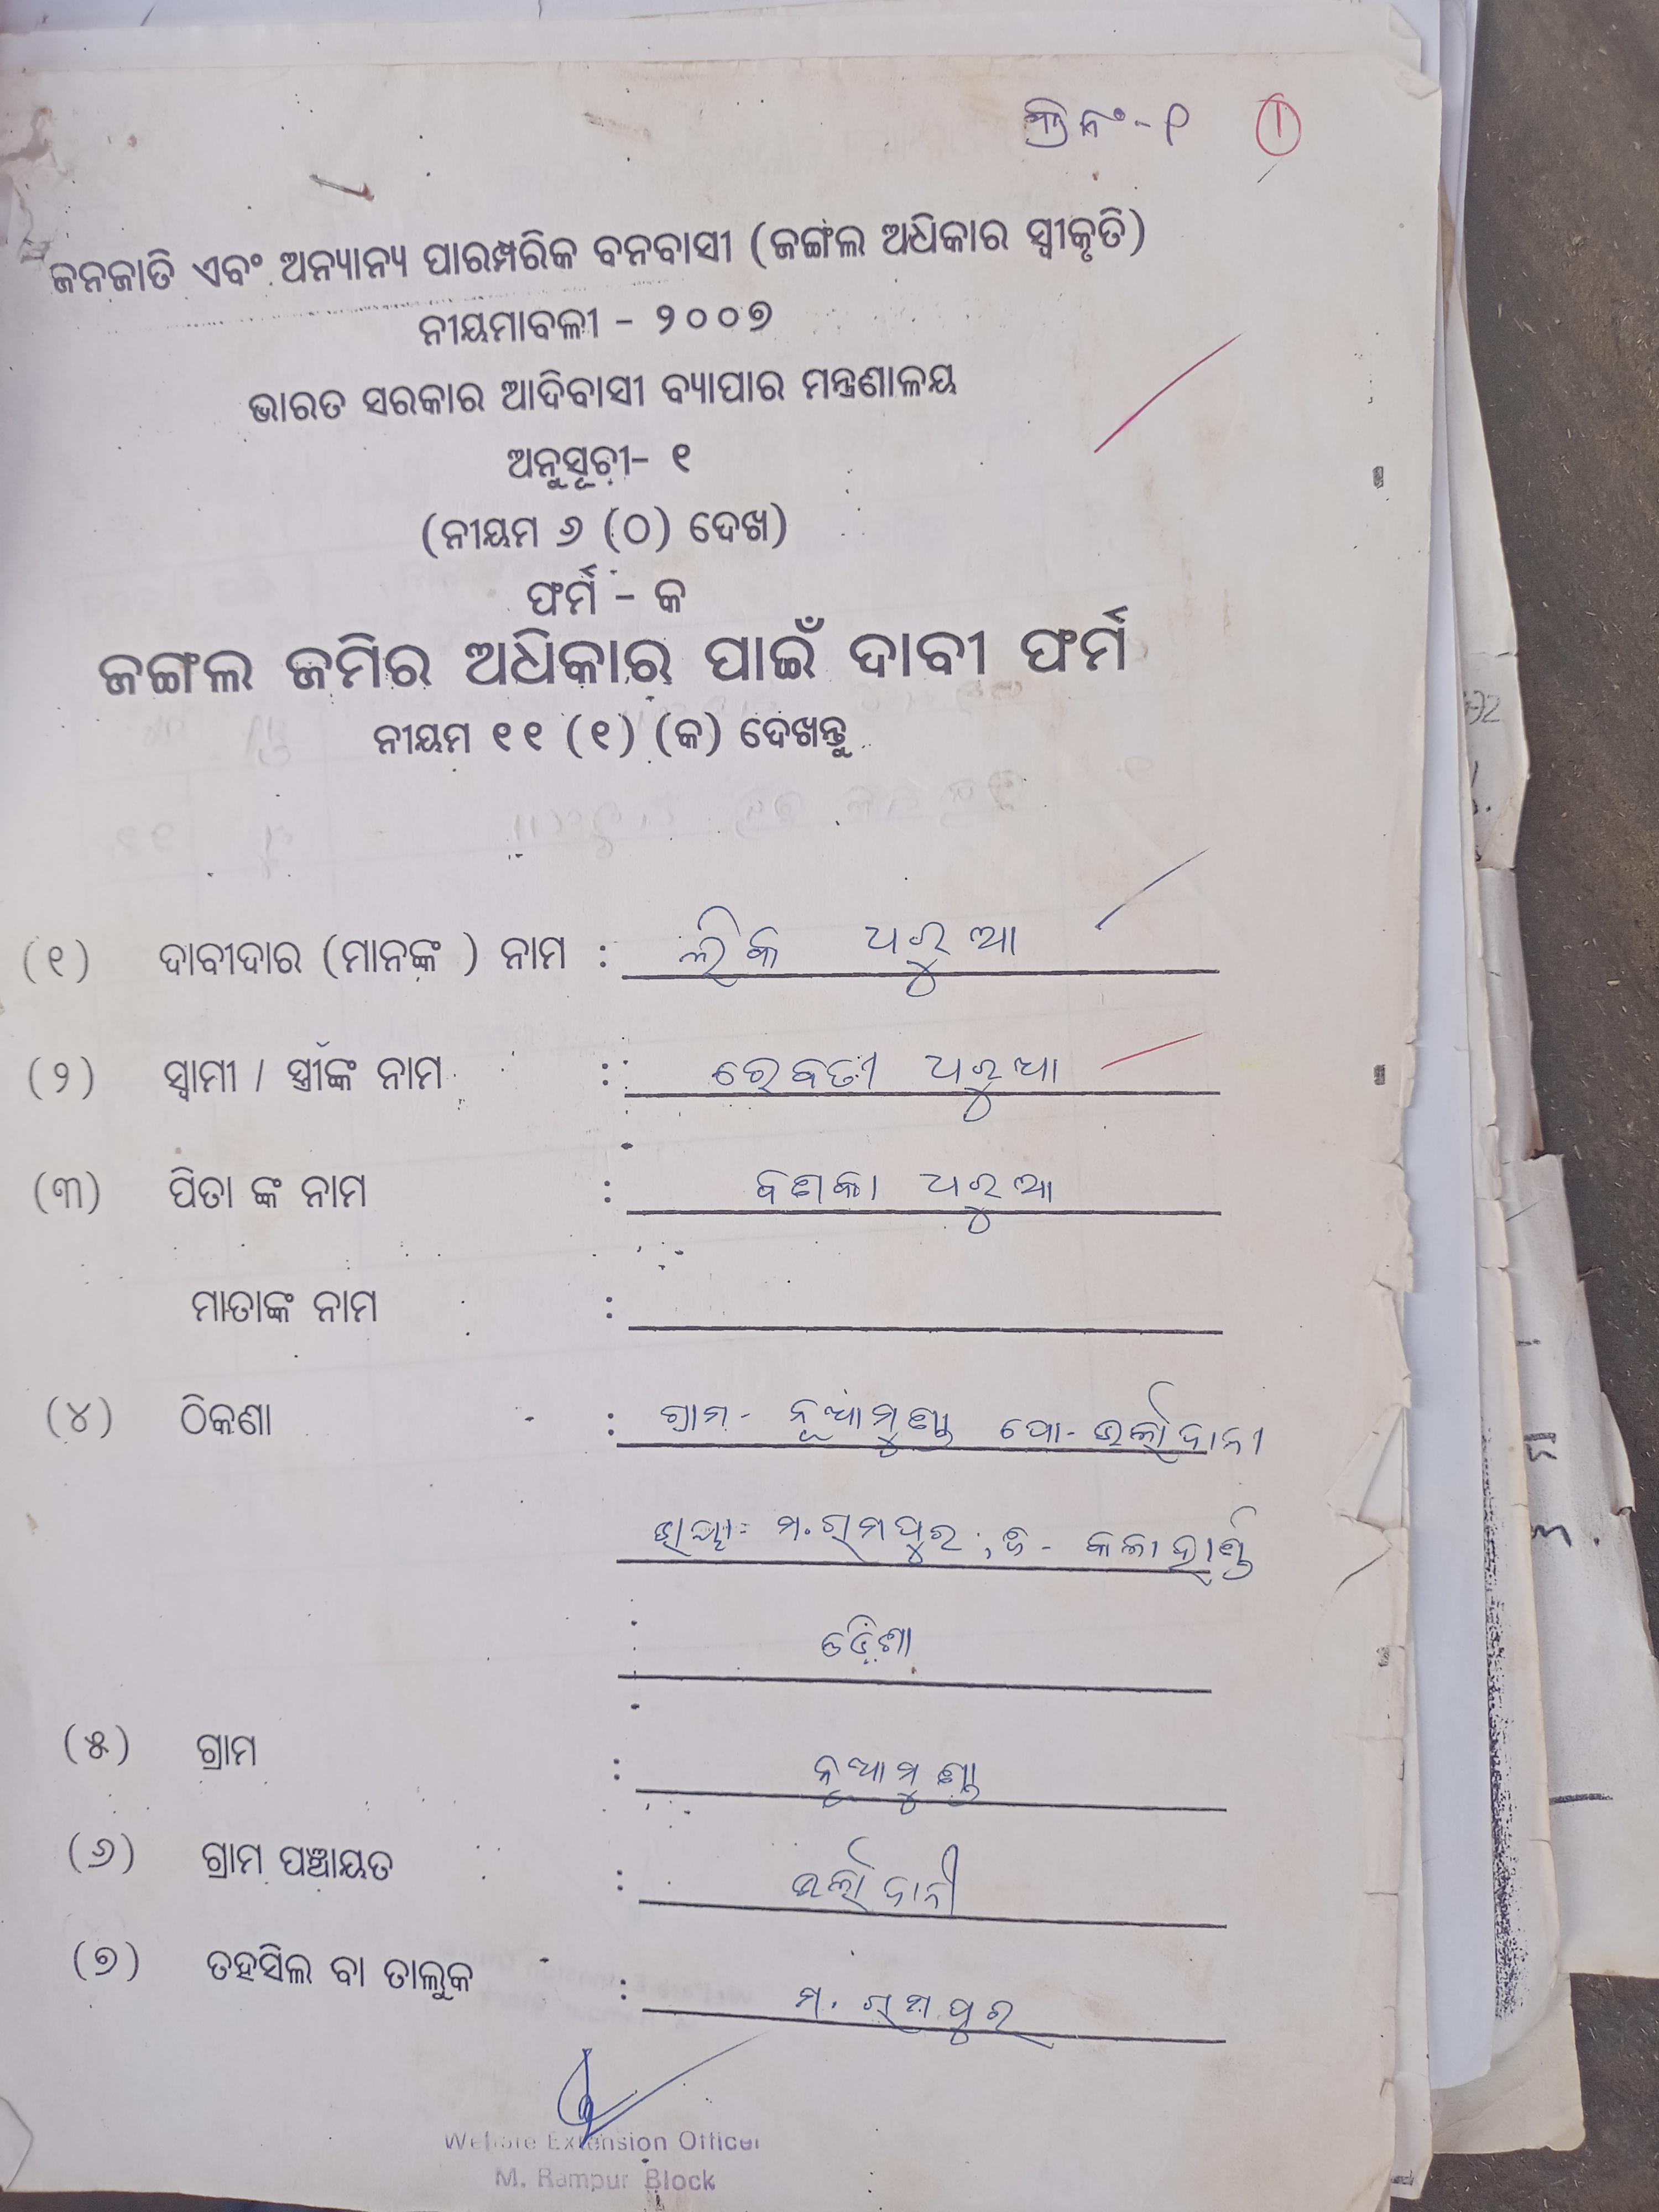 କ୍ରିନଂ-୧ ①
ଜନଜାତି ଏବଂ ଅନ୍ୟାନ୍ୟ ପାରମ୍ପରିକ ବନବାସୀ (ଜଙ୍ଗଲ ଅଧିକାର ସ୍ୱୀକୃତି)
ନୀୟମାବଳୀ - ୨୦୦୭
ଭାରତ ସରକାର ଆଦିବାସୀ ବ୍ୟାପାର ମନ୍ତ୍ରଣାଳୟ
ଅନୁସୂଚୀ- ୧
(ନୀୟମ ୬ (ଠ) ଦେଖ)
ଫର୍ମ - କ
ଜଙ୍ଗଲ ଜମିର ଅଧିକାର ପାଇଁ ଦାବୀ ଫର୍ମ
ନୀୟମ ୧୧ (୧) (କ) ଦେଖନ୍ତୁ
(୧) ଦାବୀଦାର (ମାନଙ୍କ ) ନାମ : ଲିକ ଧରୁଆ
(୨) ସ୍ୱାମୀ / ସ୍ତ୍ରୀଙ୍କ ନାମ : ରେବତୀ ଧରୁଆ
(୩) ପିତା ଙ୍କ ନାମ : ଧରୁଆ
ମାତାଙ୍କ ନାମ :
(୪) ଠିକଣା : ଗ୍ରାମ- ନୂଆମୁଣ୍ଡା ପୋ- ଉର୍ଲାଦାନୀ
ମ.ରାମପୁର, ଜି- କଳାହାଣ୍ଡି
ଓଡ଼ିଶା
(୫) ଗ୍ରାମ : ନୂଆମୁଣ୍ଡା
(୬) ଗ୍ରାମ ପଞ୍ଚାୟତ : ଉର୍ଲାଦାନୀ
(୭) ତହସିଲ ବା ତାଲୁକ : ମ. ରାମପୁର
Welfare Extension Officer
M. Rampur Block